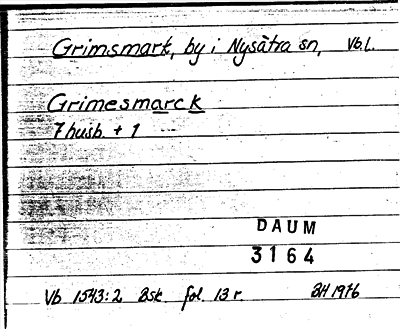 Grimsmark, by i Nysätra sn, Vb.l.
Grimesmarck
7 husb. + 1
DAUM
3164
Vb 1543:2 Bsk. fol. 13 r. BH 1976